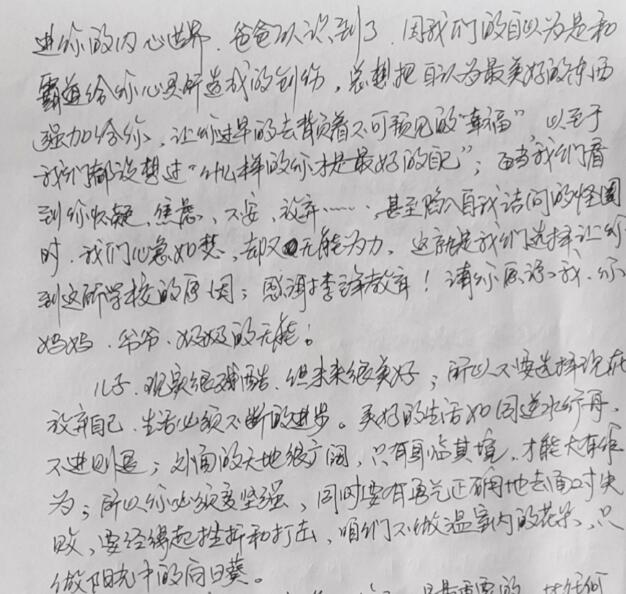 进你的内心世界，爸爸认识到了，因我们的自以为是和
霸道给你心灵所造成的创伤，总想把自认为最美好的东西
强加给你，让你过早的去背负着不可预见的“幸福”，以至于
我们都没想过“什么样的你才是最好的自己”；当我们看
到你怀疑、焦虑、不安、放弃……甚至陷入自我诘问的怪圈
时，我们心急如焚，却又无能为力，这就是我们选择让你
到这所学校的原因；感谢择教育！请你原谅我、你
妈妈、爷爷、奶奶的无能！
儿子，现实很残酷，但未来很美好；所以不要选择现在
放弃自己，生活必须不断的进步。美好的生活如同逆水行舟，
不进则退；外面的天地很广阔，只有身临其境，才能大有作
为；所以你必须要坚强，同时要有勇气正确地去面对失
败，要经得起挫折和打击，咱们不做温室内的花朵，只
做阳光中的向日葵。